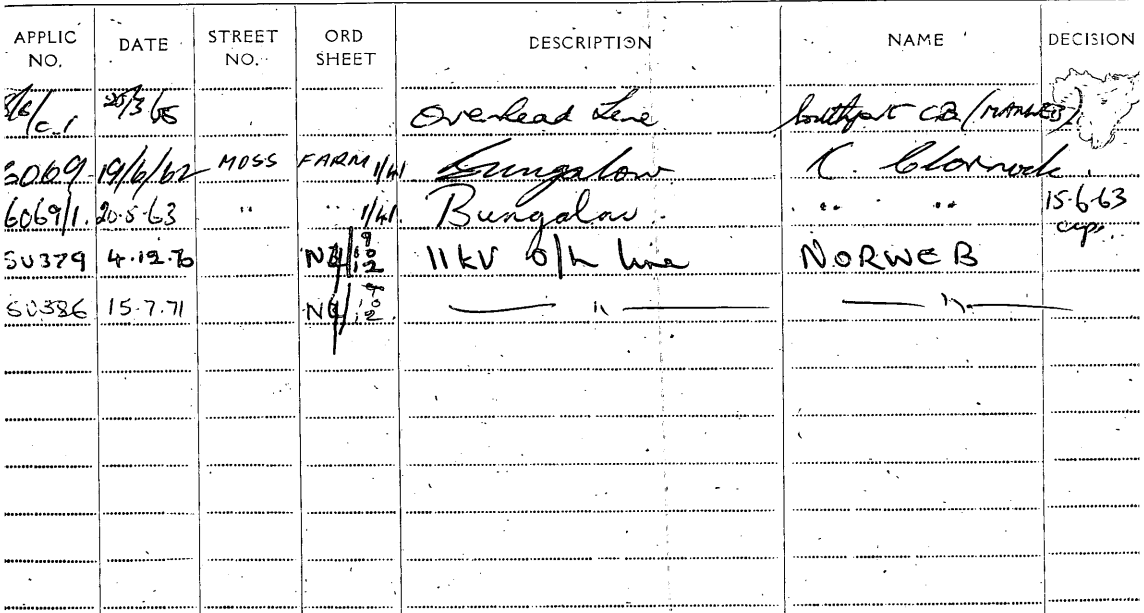 APPLIC NO. DATE STREET NO. ORD SHEET DESCRIPTION NAME DECISION
Overhead Line Southport C.B. (MANWEB)
19/6/62 MOSS FARM 1/41 Bungalow
6069/1. 20-5-63 " " 1/41. Bungalow. " " 15-6-63
SU379 4.12.70 11kV o/h line NORWEB
SU386 15.7.71 — " — — " —